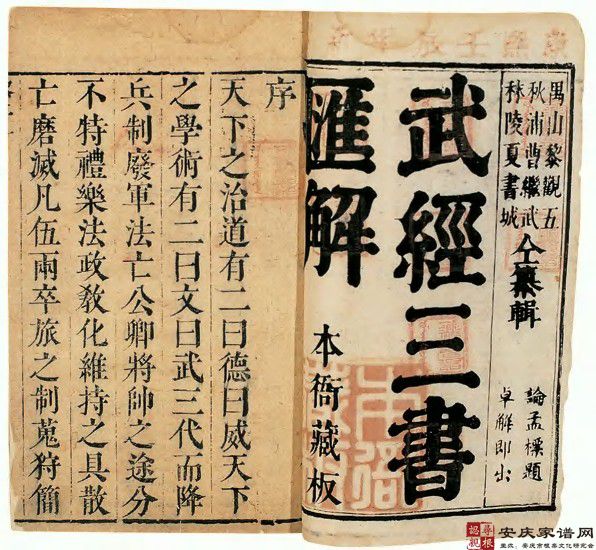 禺山黎觀五
秋浦曹繼武
秣陵夏書城
仝纂輯
論孟標題
卓解即出
武經三書
匯解
本衙藏板
序
天下之治道有二曰德曰威天下
之學術有二曰文曰武三代而降
兵制廢軍法亡公卿將帥之途分
不特禮樂法政敎化維持之具散
亡磨滅凡伍兩卒旅之制蒐狩簡
安庆家谱网